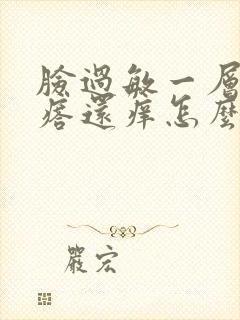 臉過敏一層
痞還痒怎麼
嚴宏